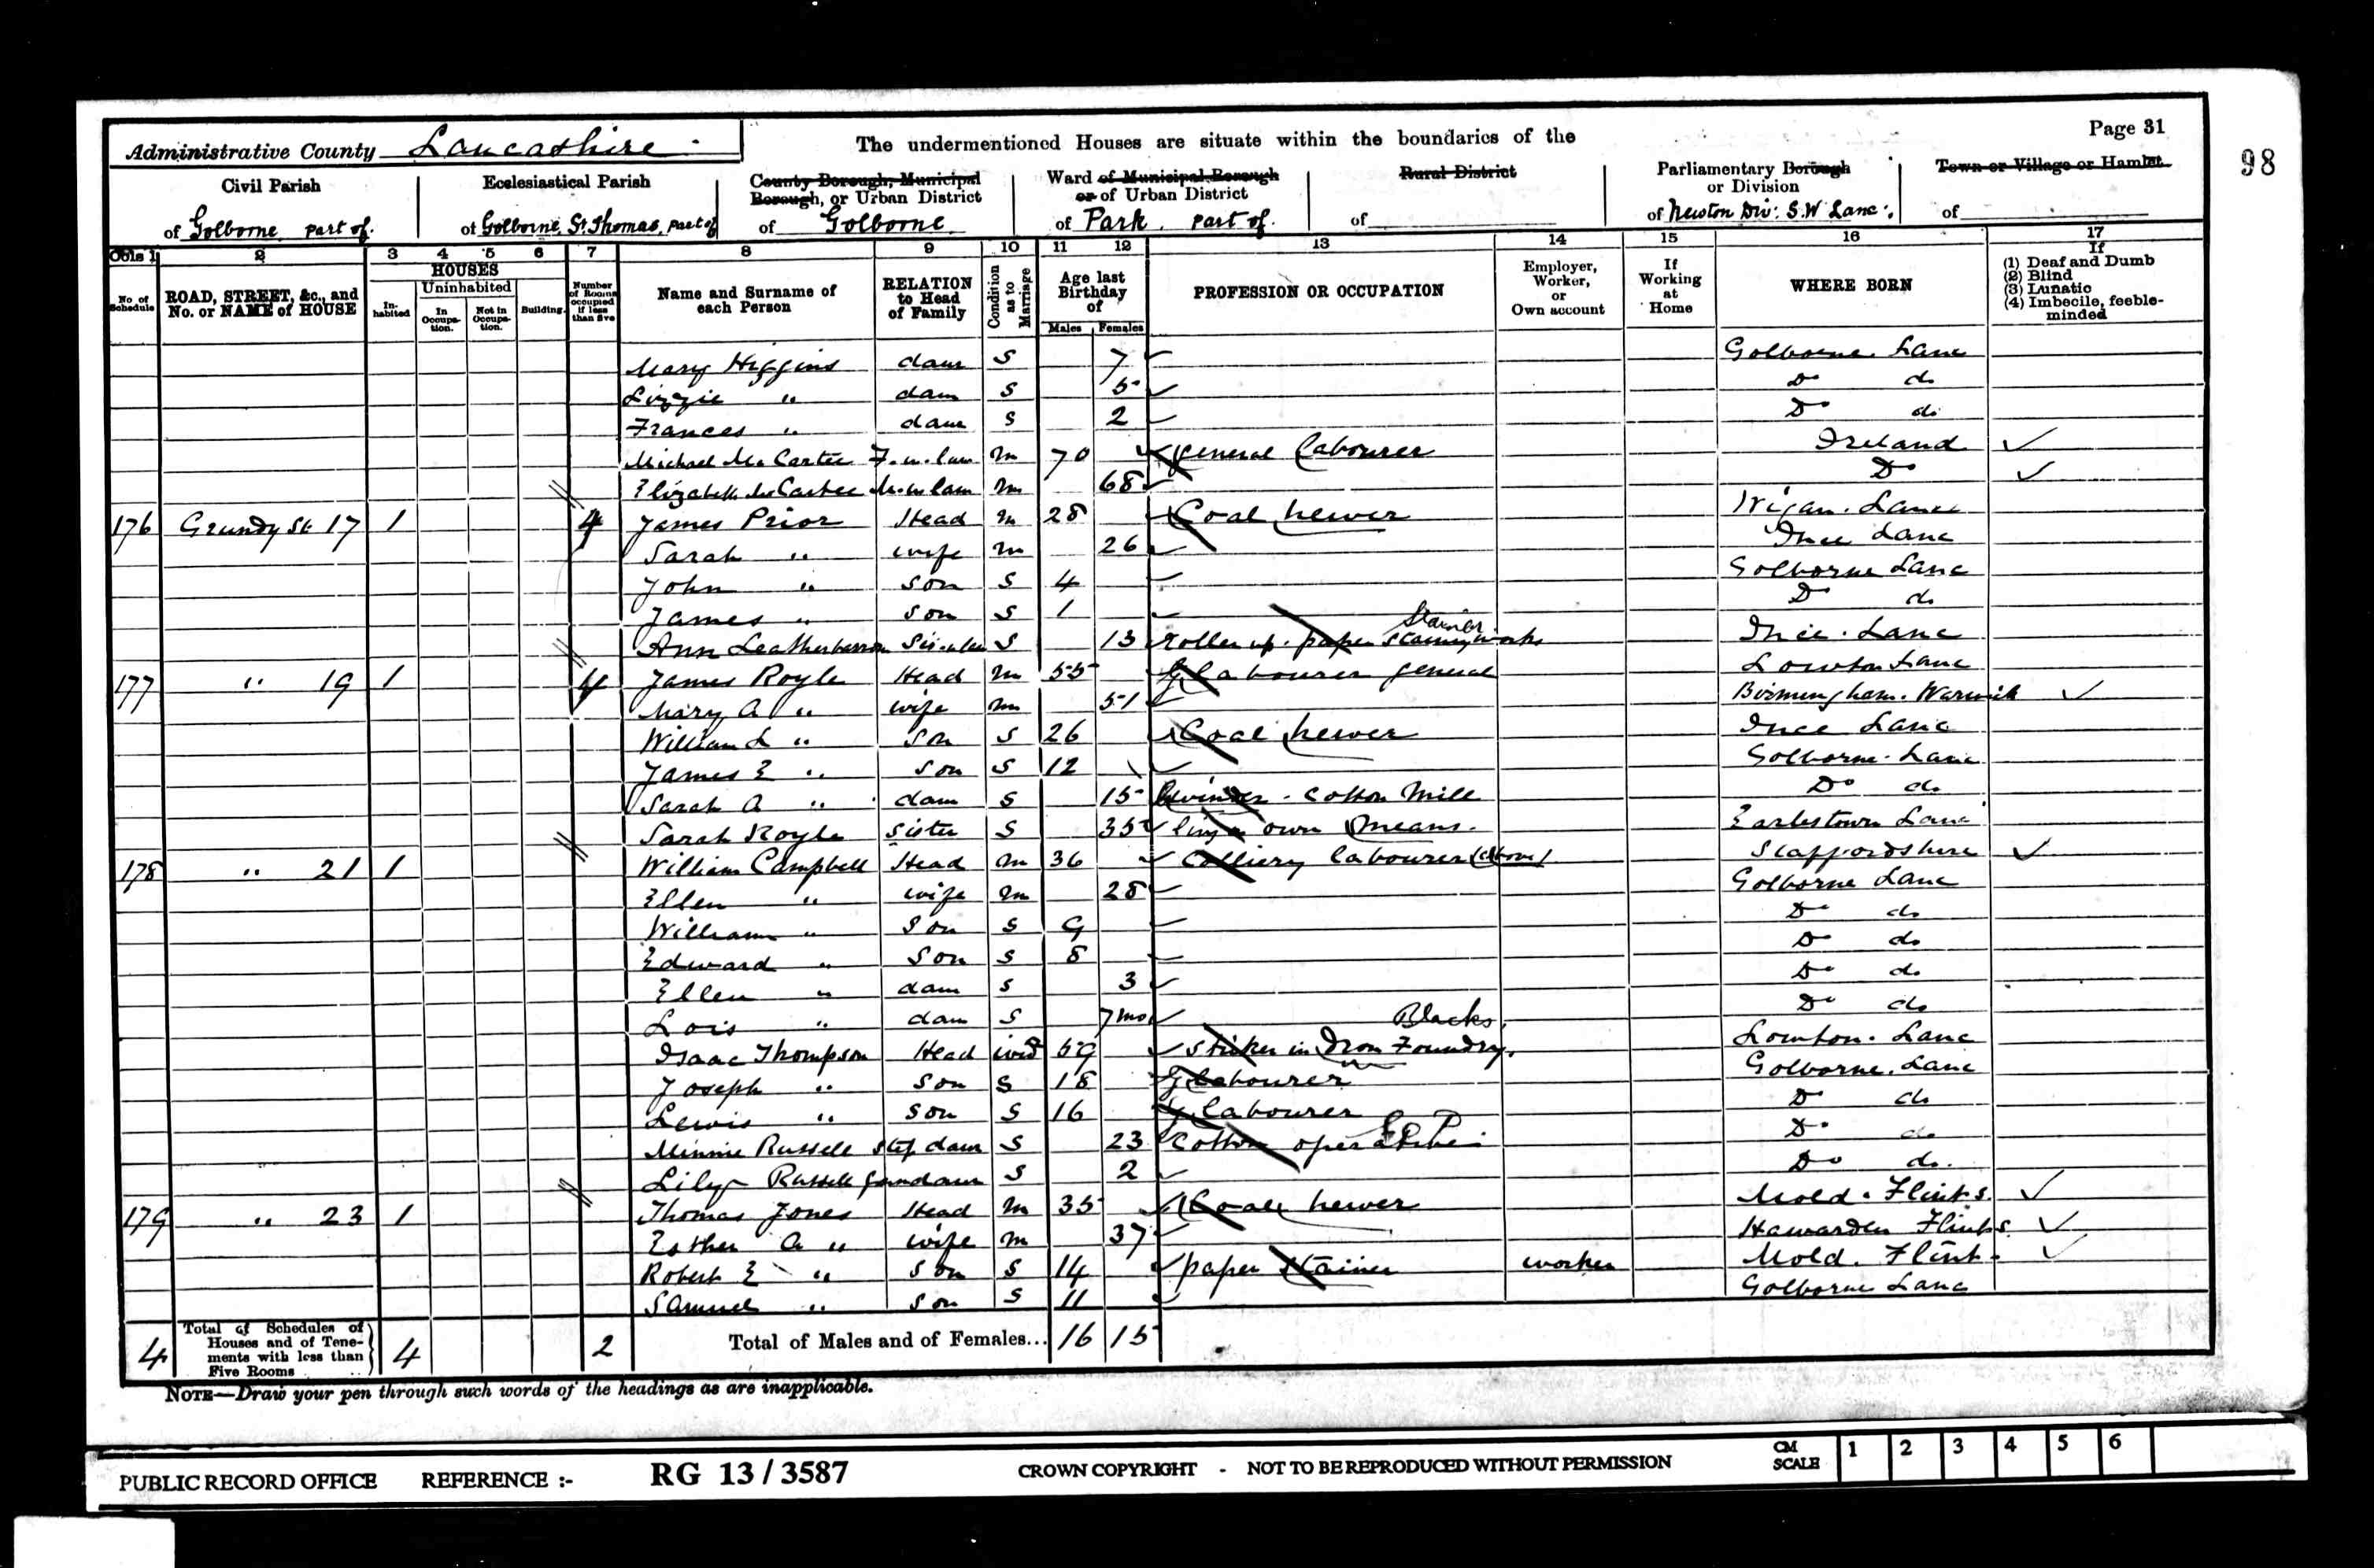 Administrative County Lancashire
The undermentioned Houses are situate within the boundaries of the
Page 31
98
Civil Parish
of Golborne part of.
Ecclesiastical Parish
of Golborne St Thomas, part of
County Borough, Municipal Borough, or Urban District
of Golborne
Ward of Municipal Borough or of Urban District
of Park. part of.
Rural District
of
Parliamentary Borough or Division
of Newton Div: S.W Lanc:
Town or Village or Hamlet
of
Cols 1 2 3 4 5 6 7 8 9 10 11 12 13 14 15 16 17
No of Schedule
ROAD, STREET, &c., and No. or NAME of HOUSE
HOUSES
Inhabited
Uninhabited
In Occupation.
Not in Occupation.
Building.
Number of Rooms occupied if less than five
Name and Surname of each Person
RELATION to Head of Family
Condition as to Marriage
Age last Birthday of
Males Females
PROFESSION OR OCCUPATION
Employer, Worker, or Own account
If Working at Home
WHERE BORN
If
(1) Deaf and Dumb
(2) Blind
(3) Lunatic
(4) Imbecile, feeble-minded
Mary Higgins daur S 7 Golborne. Lanc
Lizzie " daur S 5 Do do
Frances " daur S 2 Do do
Michael Mc Cartee F. in. law m 70 general labourer Ireland
Elizabeth Mc Cartee M. in law m 68 Do
176 Grundy St 17 1 4 James Prior Head m 28 Coal hewer Wigan. Lanc
Sarah " wife m 26 Ince Lanc
John " Son S 4 Golborne Lanc
James " Son S 1 Do do
Ann Sis. in law S 13 Roller up. paper works Stainer Ince. Lanc
177 " 19 1 4 James Royle Head m 55 labourer general Lowton Lanc
Mary A " wife m 51 Birmingham. Warwick
William L " Son S 26 Coal hewer Ince Lanc
James E " Son S 12 Golborne. Lanc
Sarah A " daur S 15 Winder. Cotton Mill Do do
Sarah Royle Sister S 35 own means. Earlestown Lanc
178 " 21 1 William Campbell Head m 36 Colliery labourer (above) Staffordshire
Ellen " wife m 28 Golborne Lanc
William " Son S 9 Do do
Edward " Son S 8 Do do
Ellen " daur S 3 Do do
Lois " daur S 7 mo Do do
Isaac Thompson Head wid 59 Striker in Iron Foundry. Blacks. Lowton. Lanc
Joseph " Son S 18 G labourer Golborne. Lanc
Lewis " Son S 16 G labourer Do do
Minnie Russell Step daur S 23 Cotton operative Do do
Lily Russell S 2 Do do.
179 " 23 1 Thomas Jones Head m 35 Coal hewer Mold. Flints.
Esther A " wife m 37 Hawarden Flints.
Robert E " Son S 14 paper stainer worker Mold. Flint.
Samuel " Son S 11 Golborne Lanc
4 Total of Schedules of Houses and of Tenements with less than Five Rooms 4 2 Total of Males and of Females... 16 15
NOTE—Draw your pen through such words of the headings as are inapplicable.
PUBLIC RECORD OFFICE REFERENCE :- RG 13 / 3587 CROWN COPYRIGHT - NOT TO BE REPRODUCED WITHOUT PERMISSION CM SCALE 1 2 3 4 5 6